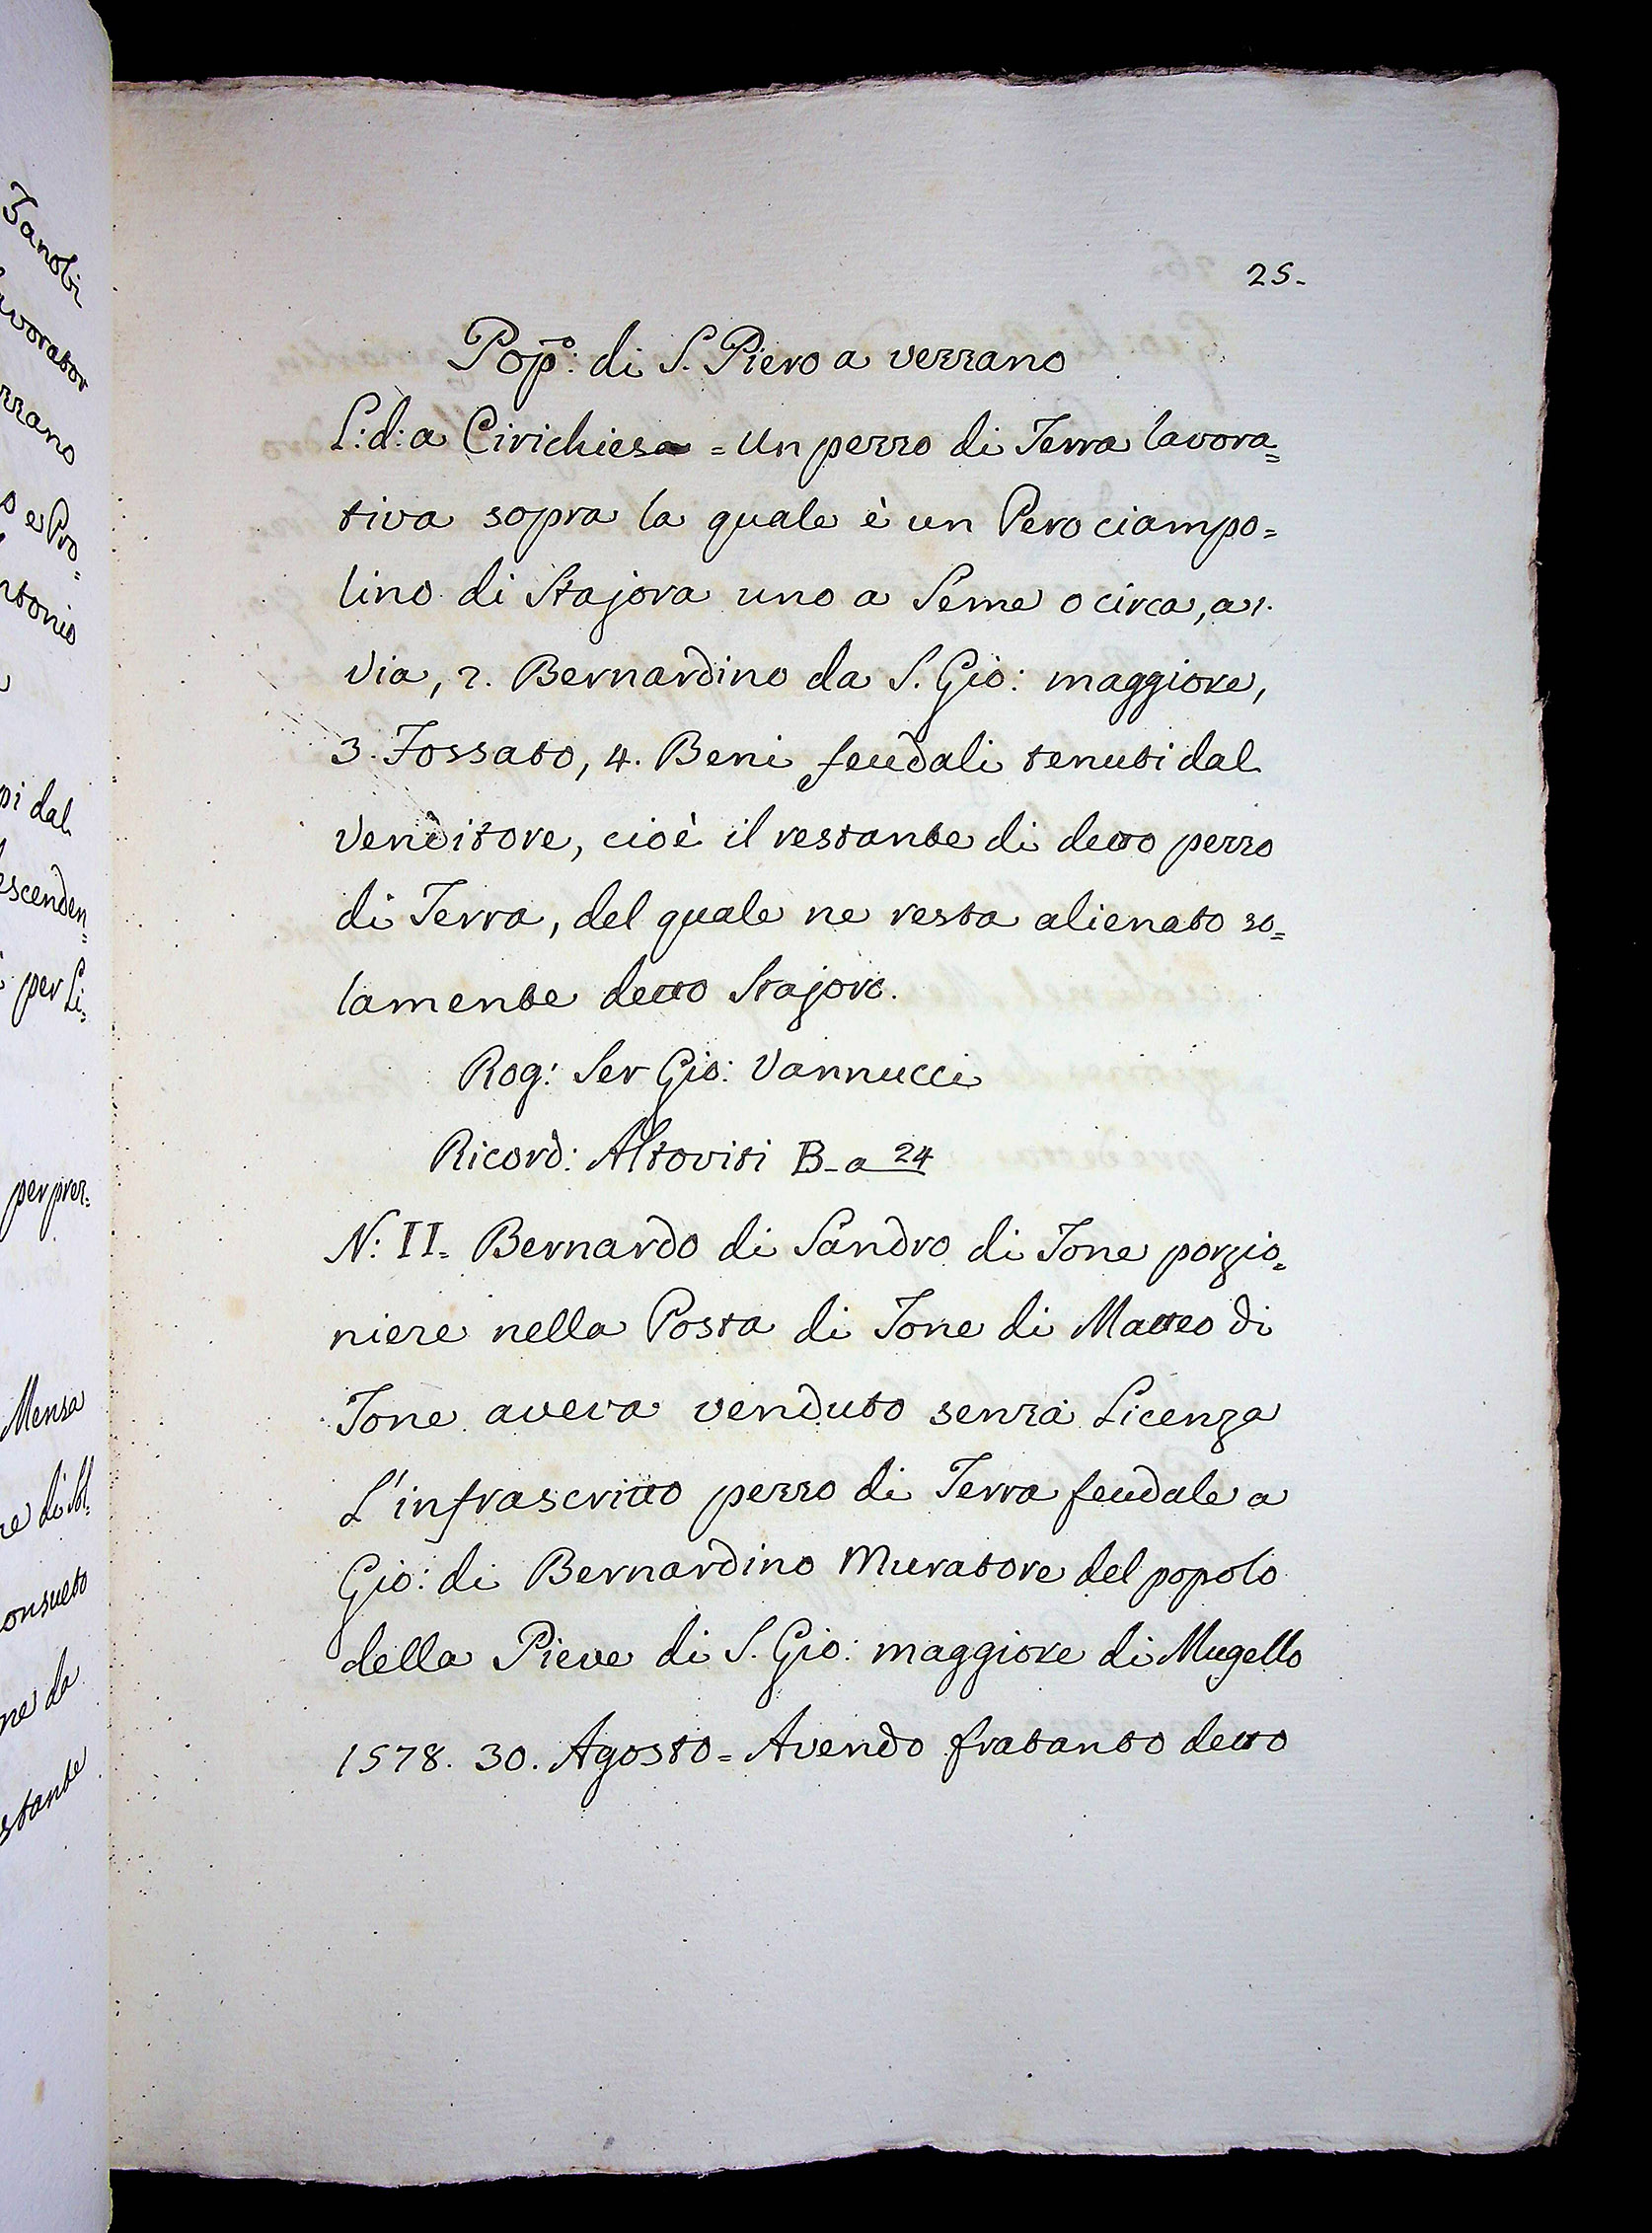 Zanobi
avorator
rrano
o e Pro=
ntonio
pi dal
escenden=
per Li=
per prez=
Mensa
re di
onsueto
ne da
stante
25.
Pop.º: di S. Piero a vezzano
L: d: a Cirichiesa = Un pezzo di Terra lavora=
tiva sopra la quale è un Pero ciampo=
lino di Stajora uno a Seme o circa, a 1.
Via, 2. Bernardino da S. Gio: maggiore,
3. Fossato, 4. Beni feudali tenuti dal
Venditore, cioè il restante di detto pezzo
di Terra, del quale ne resta alienato so=
lamente detto Stajoro.
Rog: Ser Gio: Vannucci
Ricord: Altoviti B- a 24
N: II. Bernardo di Sandro di Tone porzio=
niere nella Posta di Tone di Matteo di
Tone aveva venduto senza Licenza
L'infrascritto pezzo di Terra feudale a
Gio: di Bernardino Muratore del popolo
della Pieve di S. Gio: maggiore di Mugello
1578. 30. Agosto = Avendo fratanto detto